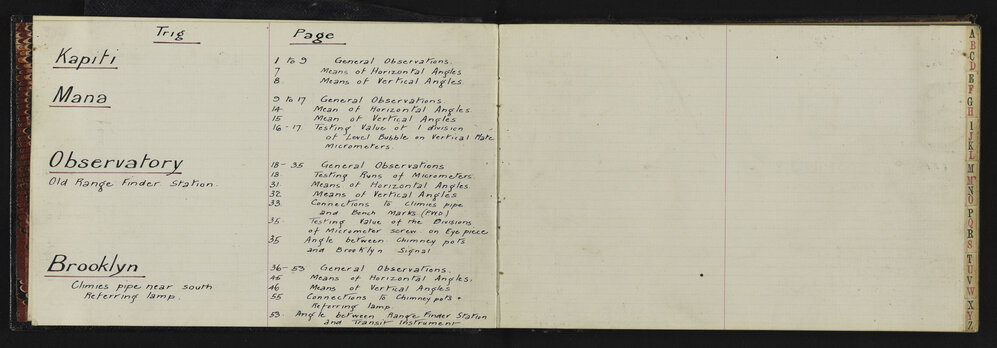 Trig Page
Kapiti
1 to 9 General Observations.
7 Means of Horizontal Angles
8. Means of Vertical Angles
Mana
9 to 17 General Observations.
14. Mean of Horizontal Angles.
15 Mean of Vertical Angles
16-17. Testing Value of 1 division
of Level Bubble on Vertical Plate
Micrometers.
Observatory
Old Range Finder Station.
18-35 General Observations
18. Testing Runs of Micrometers.
31. Means of Horizontal Angles.
32 Means of Vertical Angles
33. Connections to Climies pipe
and Bench Marks (P.W.D.)
35. Testing Value of the Divisions
of Micrometer screw on Eye piece
35 Angle between Chimney pots
and Brooklyn Signal
Brooklyn
Climies pipe near south
Referring lamp.
36-53 General Observations.
45 Means of Horizontal Angles.
46 Means of Vertical Angles
55 Connections to Chimney pots +
Referring lamp.
53. Angle between Range Finder Station
and Transit Instrument
A
B
C
D
E
F
G
H
I
J
K
L
M
Mc
N
O
P
Q
R
S
T
U
V
W
X
Y
Z